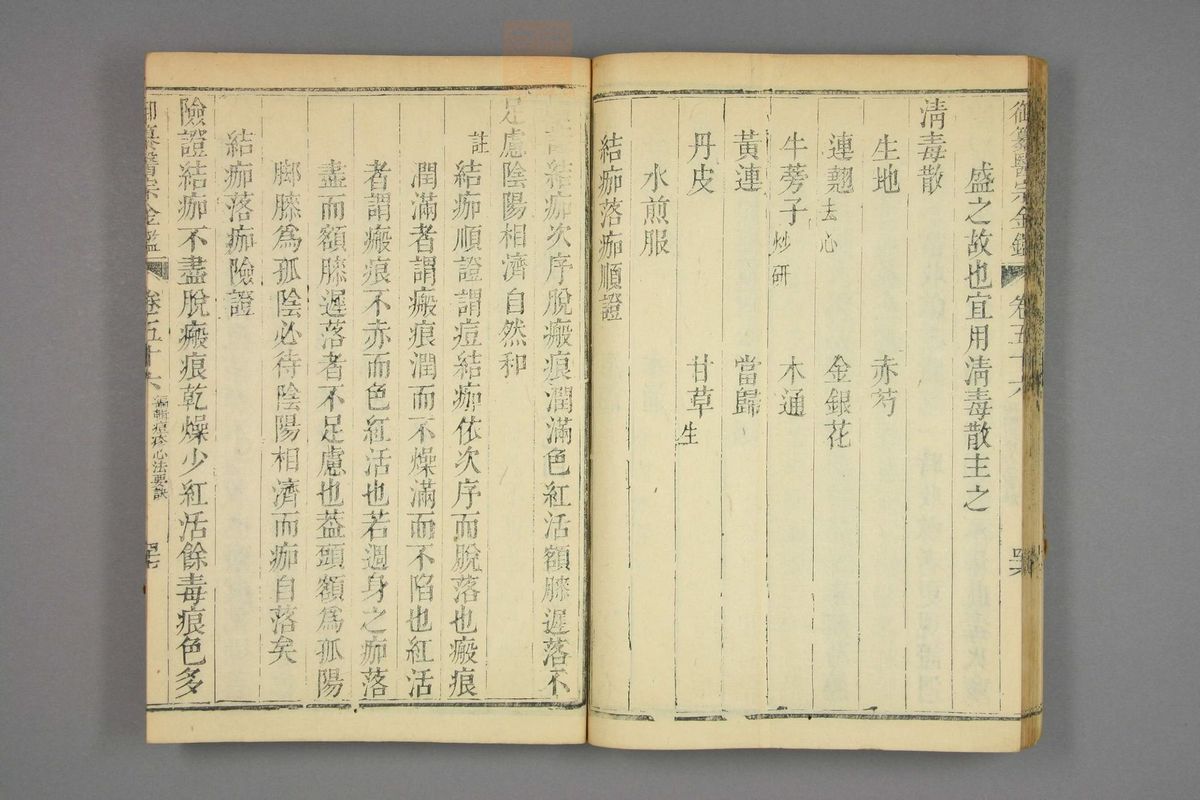 御纂醫宗金鑑 卷五十六
盛之故也宜用清毒散主之
清毒散
生地 赤芍
連翹去心 金銀花
牛蒡子炒研 木通
黃連 當歸
丹皮 甘草生
水煎服
結痂落痂順證
結痂次序脫瘢痕潤滿色紅活額膝遲落不
足慮陰陽相濟自然和
註結痂順證謂痘結痂依次序而脫落也瘢痕
潤滿者謂瘢痕潤而不燥滿而不陷也紅活
者謂瘢痕不赤而色紅活也若週身之痂落
盡而額膝遲落者不足慮也葢頭額為孤陽
脚膝為孤陰必待陰陽相濟而痂自落矣
結痂落痂險證
險證結痂不盡脫瘢痕乾燥少紅活餘毒痕色多
御纂醫宗金鑑 卷五十六 編輯痘疹心法要訣